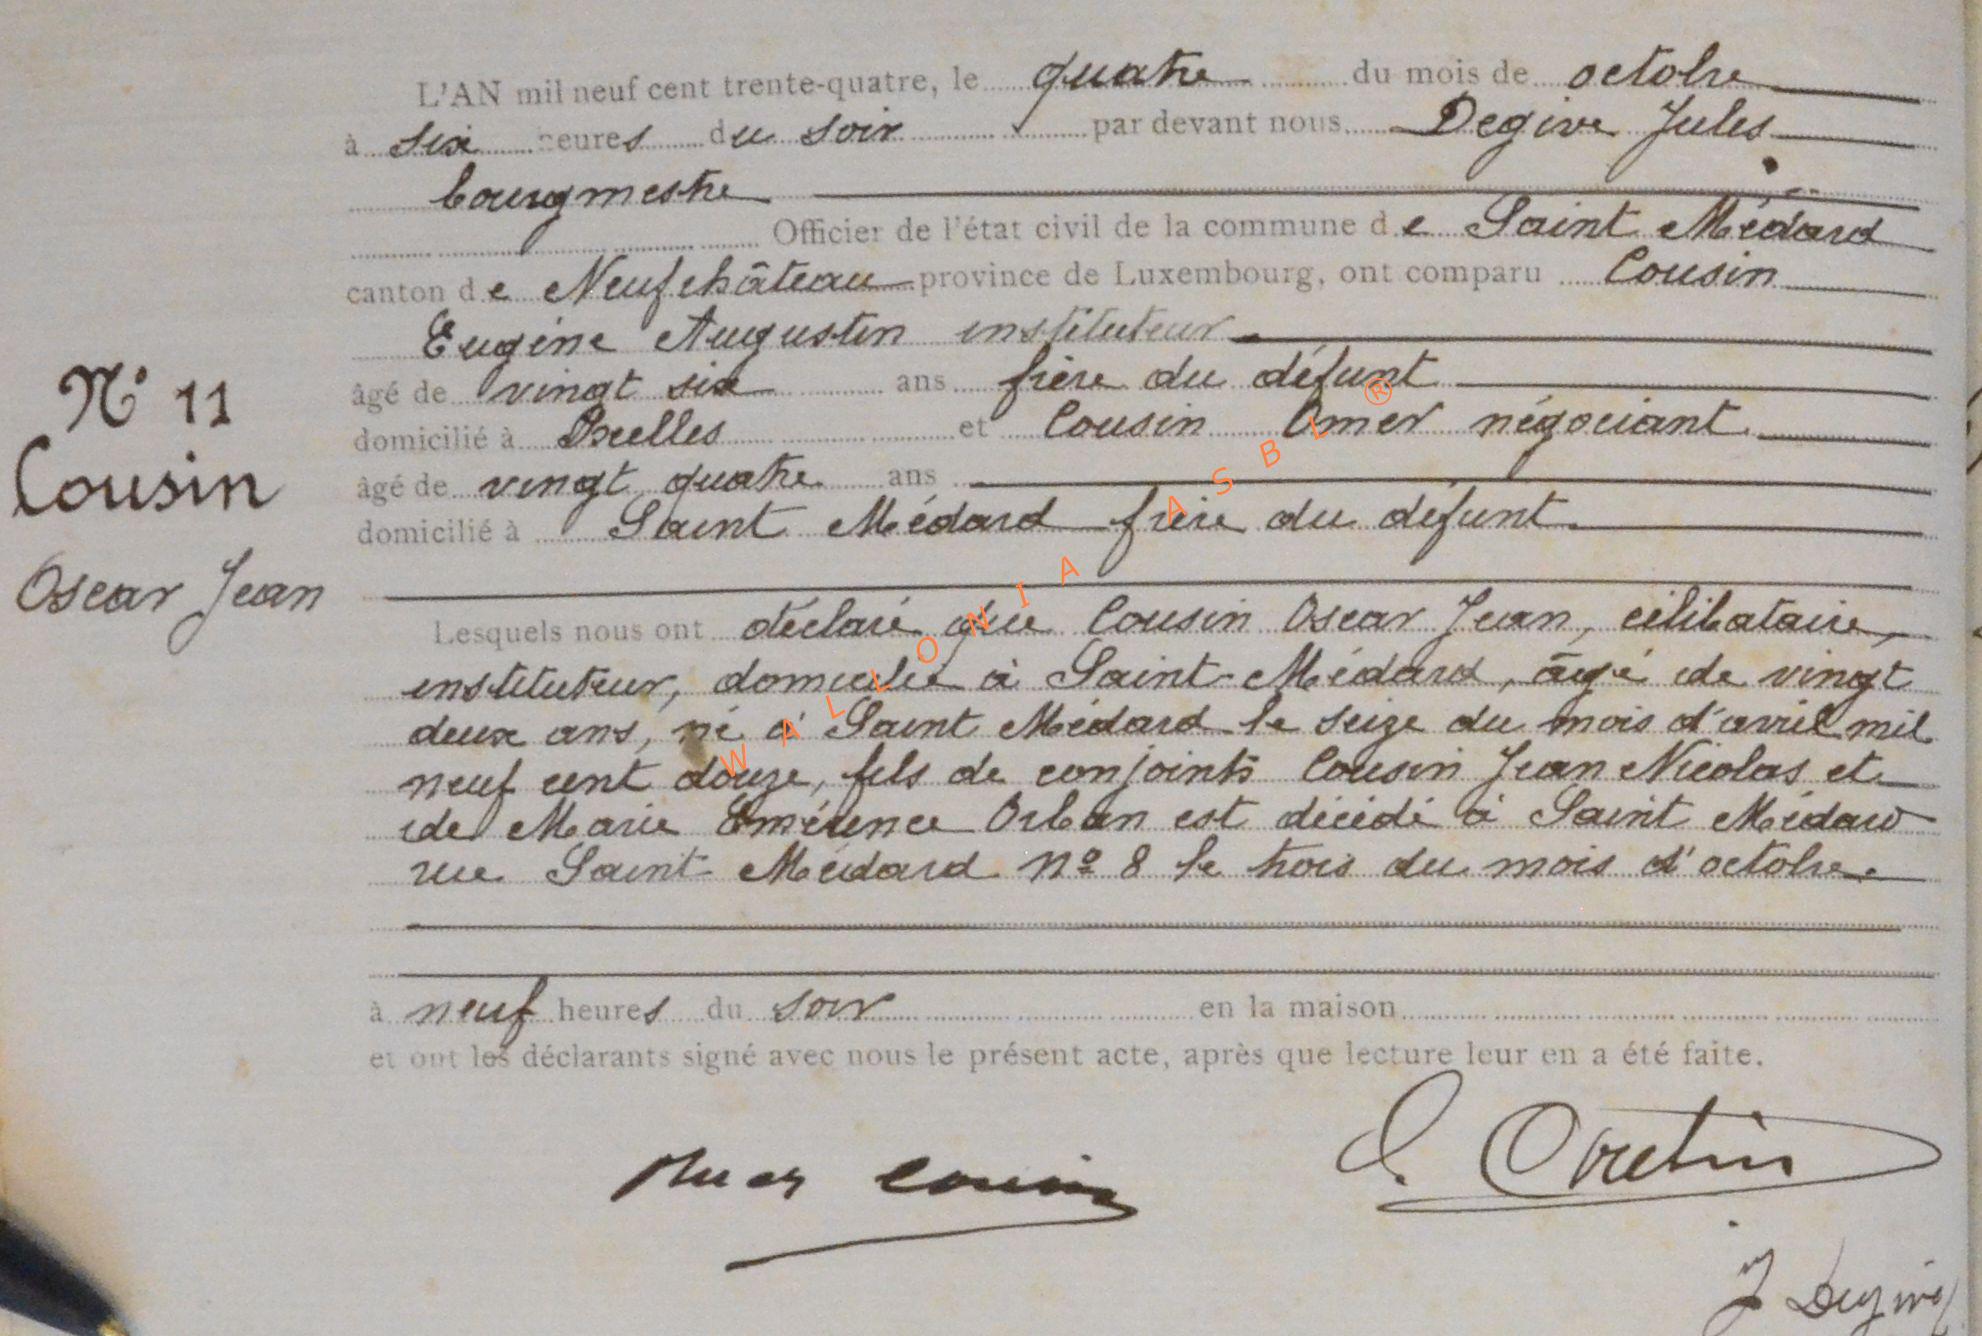 L'AN mil neuf cent trente-quatre, le quatre du mois de octobre
à six heures du soir par devant nous Degive Jules
bourgmestre
Officier de l'état civil de la commune de Saint Médard
canton de Neufchâteau province de Luxembourg, ont comparu Cousin
Eugène Augustin instituteur
âgé de vingt six ans frère du défunt
domicilié à Ixelles et Cousin Omer négociant
âgé de vingt quatre ans
domicilié à Saint Médard frère du défunt
N° 11
Cousin
Oscar Jean
Lesquels nous ont déclaré que Cousin Oscar Jean, célibataire,
instituteur, domicilié à Saint-Médard, âgé de vingt
deux ans, né à Saint Médard le seize du mois d'avril mil
neuf cent douze, fils de conjoints Cousin Jean Nicolas et
de Marie Emérence Orban est décédé à Saint Médard
rue Saint-Médard N° 8 le trois du mois d'octobre.
à neuf heures du soir en la maison
et ont les déclarants signé avec nous le présent acte, après que lecture leur en a été faite.
Cousin
J Degive
WALLONIA ASBL ®